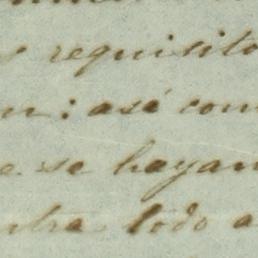 s requisito
n: asé com
e se hayan
ntra todo a